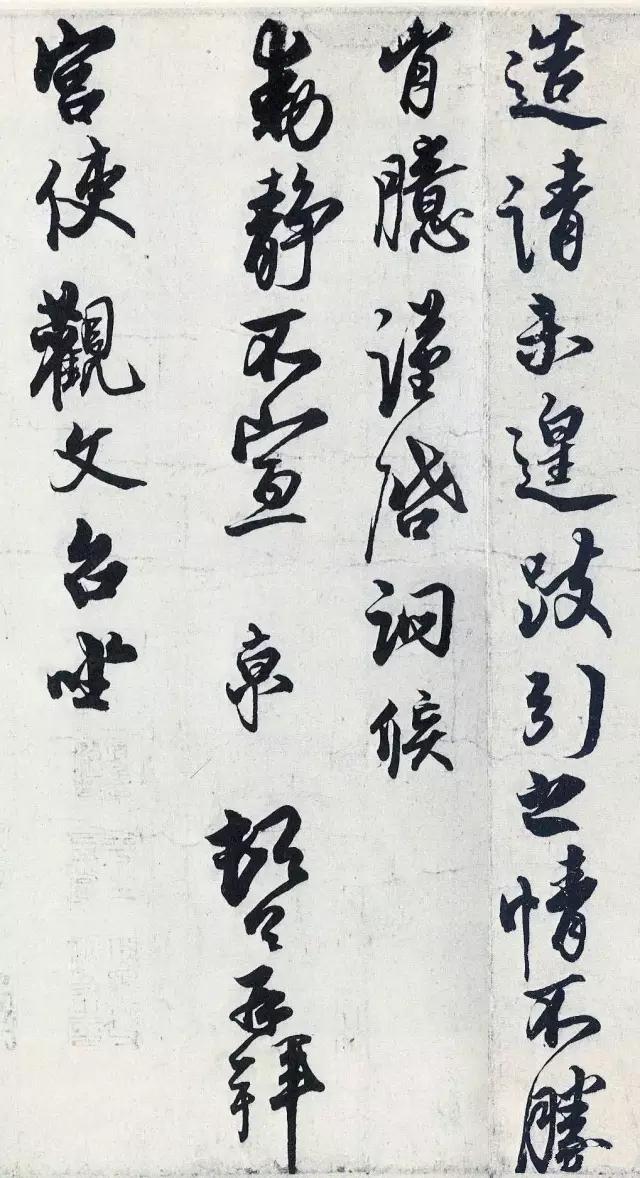 造請未遑跂引之情不勝
胷臆謹啓詗候
動靜不宣京頓首再拜
宮使觀文台坐